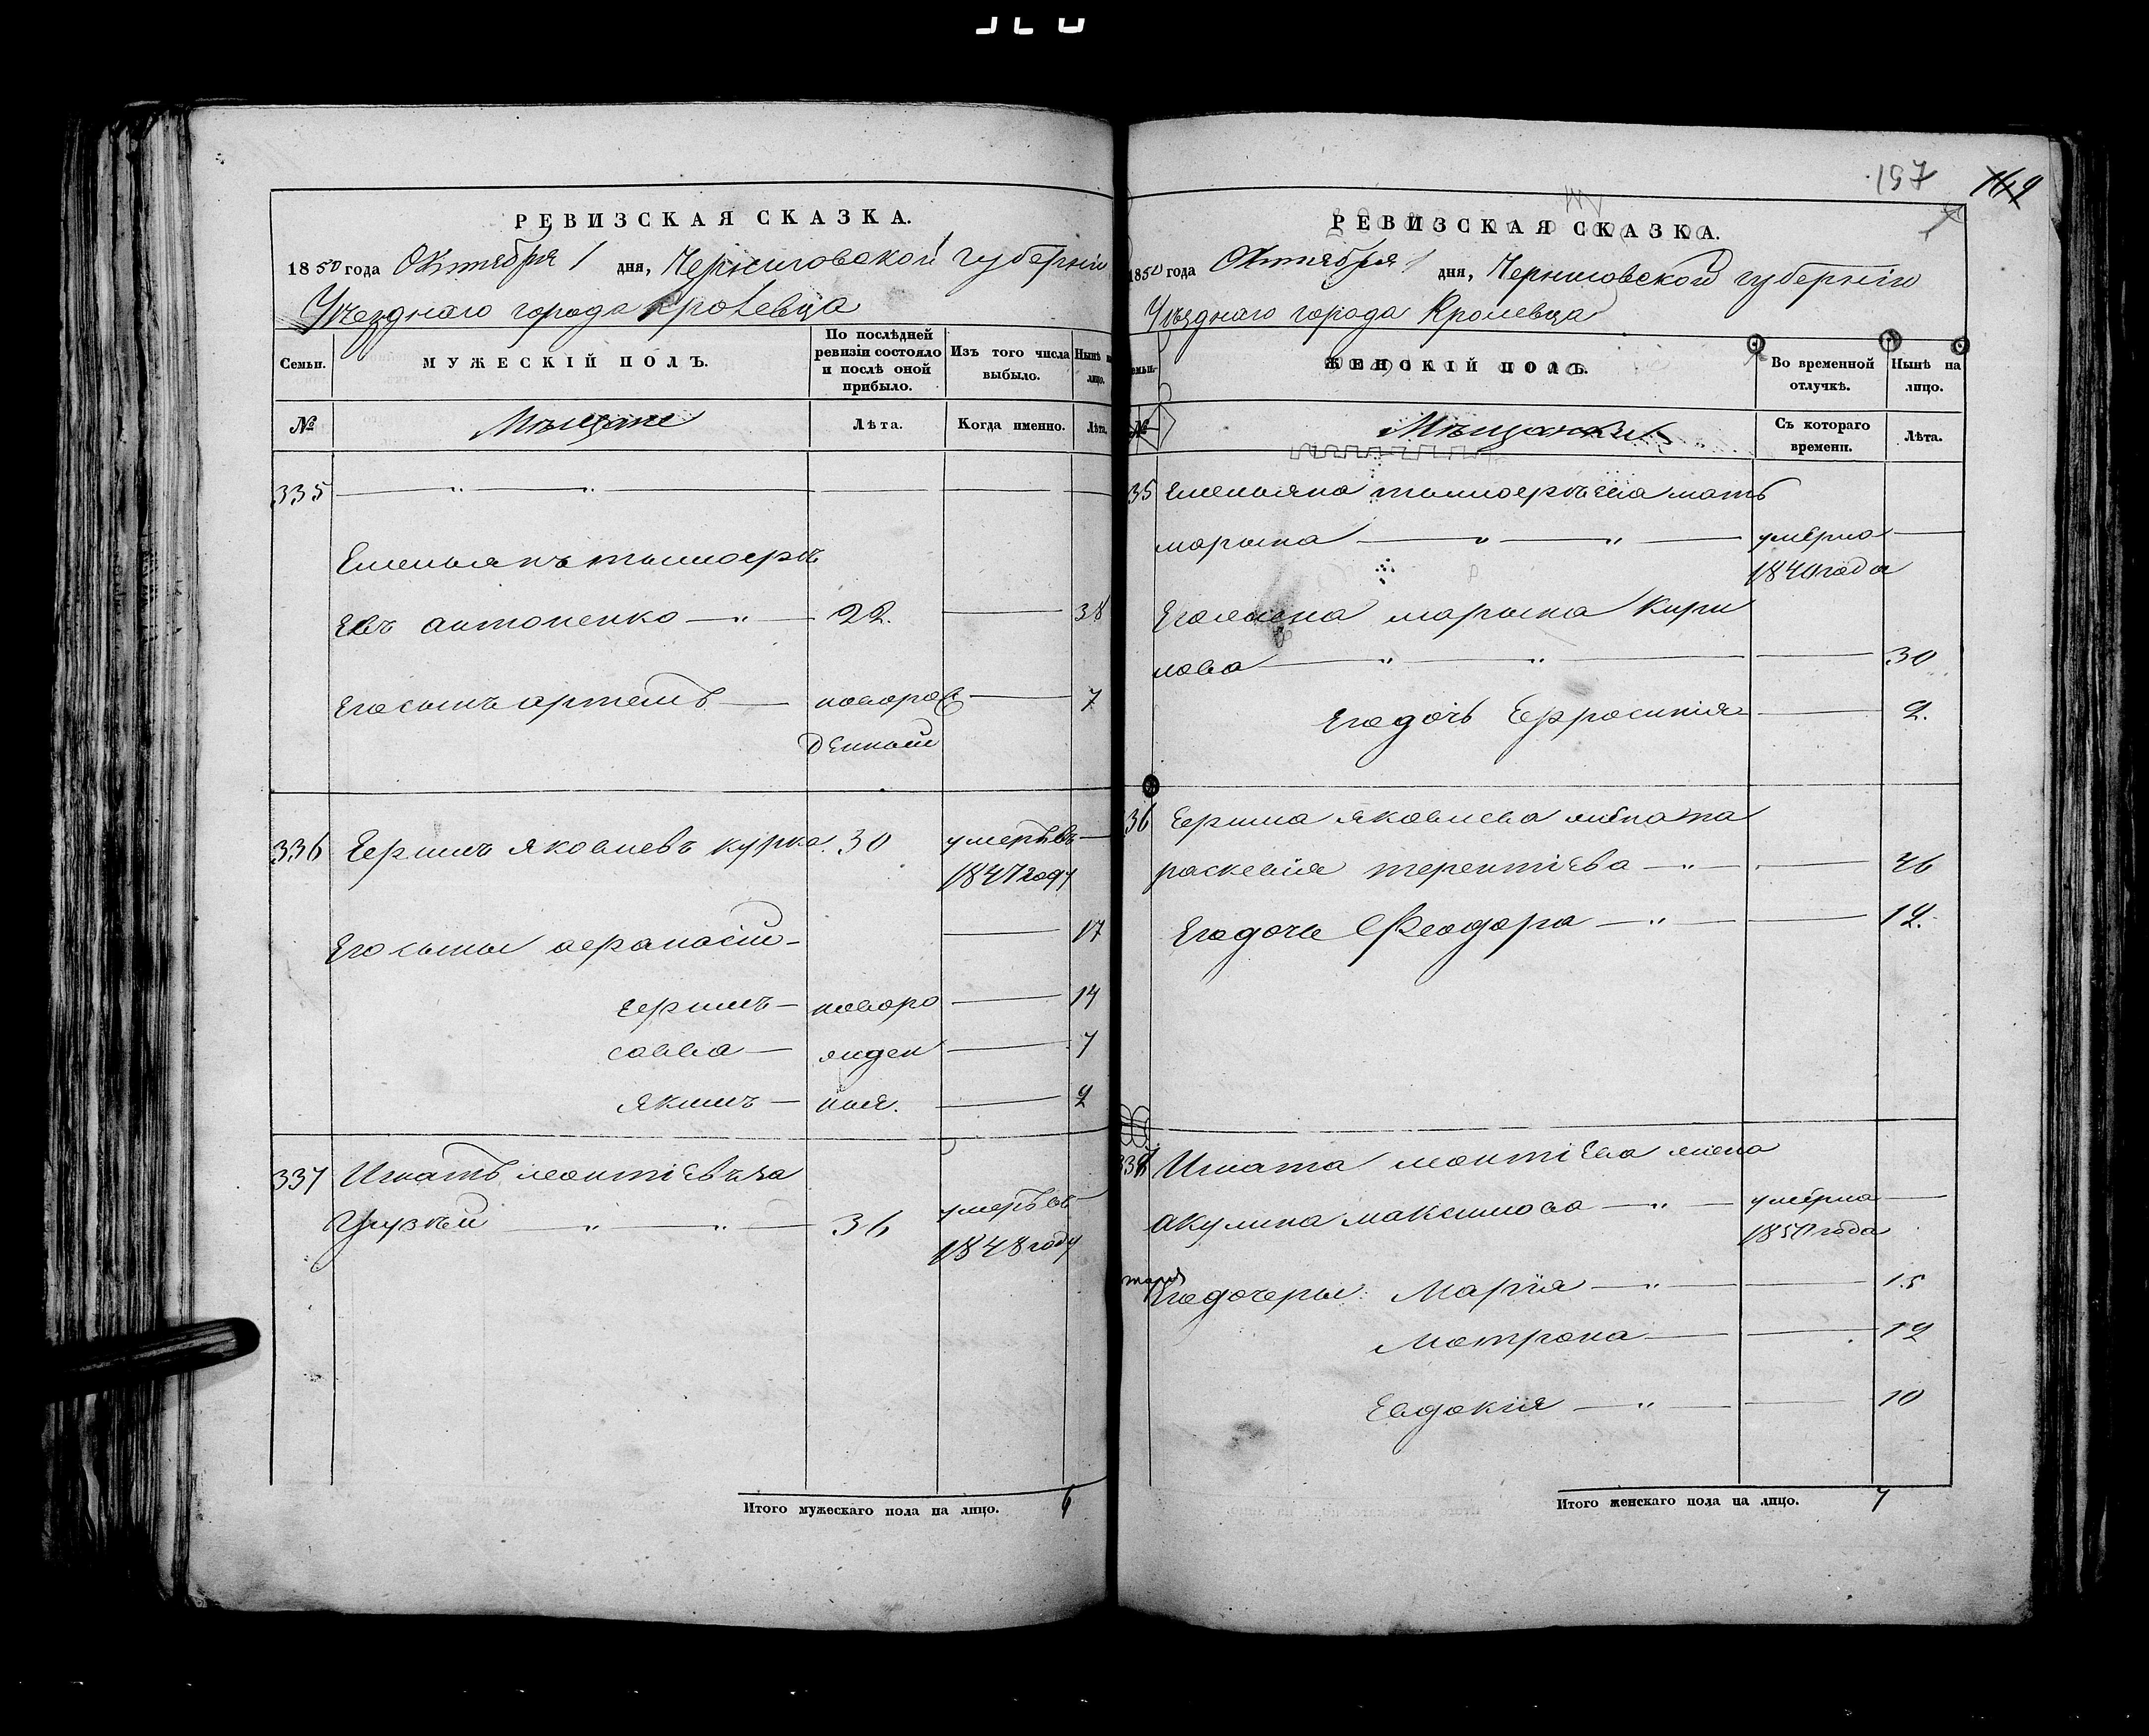 РЕВИЗСКАЯ СКАЗКА.
1850 года Октября 1 дня, Черниговской губерніи
Уѣзднаго города Кролевца
Семьи.
МУЖЕСКІЙ ПОЛЪ.
По послѣдней ревизіи состояло и послѣ оной прибыло.
Изъ того числа выбыло.
Нынѣ на лицо.
№
Мѣщане
Лѣта.
Когда именно.
Лѣта.
335
Емельянъ тимофеѣ
евъ антоненко 22. 38
Егосынъ артемъ новорож 7
денный
336 Ефимъ яковлевъ курка. 30 умеръ въ
1847 году
Его сыны афанасій 17
ефимъ новоро 14
савва жден 7
якимъ ныя. 2
337 Игнатъ леонтіевъ за
36 умеръ въ
1848 году
Итого мужескаго пола на лицо. 6
157
РЕВИЗСКАЯ СКАЗКА.
1850 года Октября 1 дня, Черниговской губерніи
Уѣзднаго города Кролевца
ЖЕНСКІЙ ПОЛЪ.
Во временной отлучкѣ.
Нынѣ на лицо.
№
Мѣщанки
Съ котораго времени.
Лѣта.
35 Емельяна тимофеѣева мать
марына умерла
1840 года
Егожена марына Кири
лова 30
Егодочь Ефросинія 2.
36 Ефима яковлева жена па
раскевія терентіева 46
Егодочь Феодора 12.
337 Игната леонтіева жена
акулина максимова умерла
1850 года
Егодочеры: Марія 15
Мотрона 12
Евдокія 10
Итого женскаго пола на лицо. 7